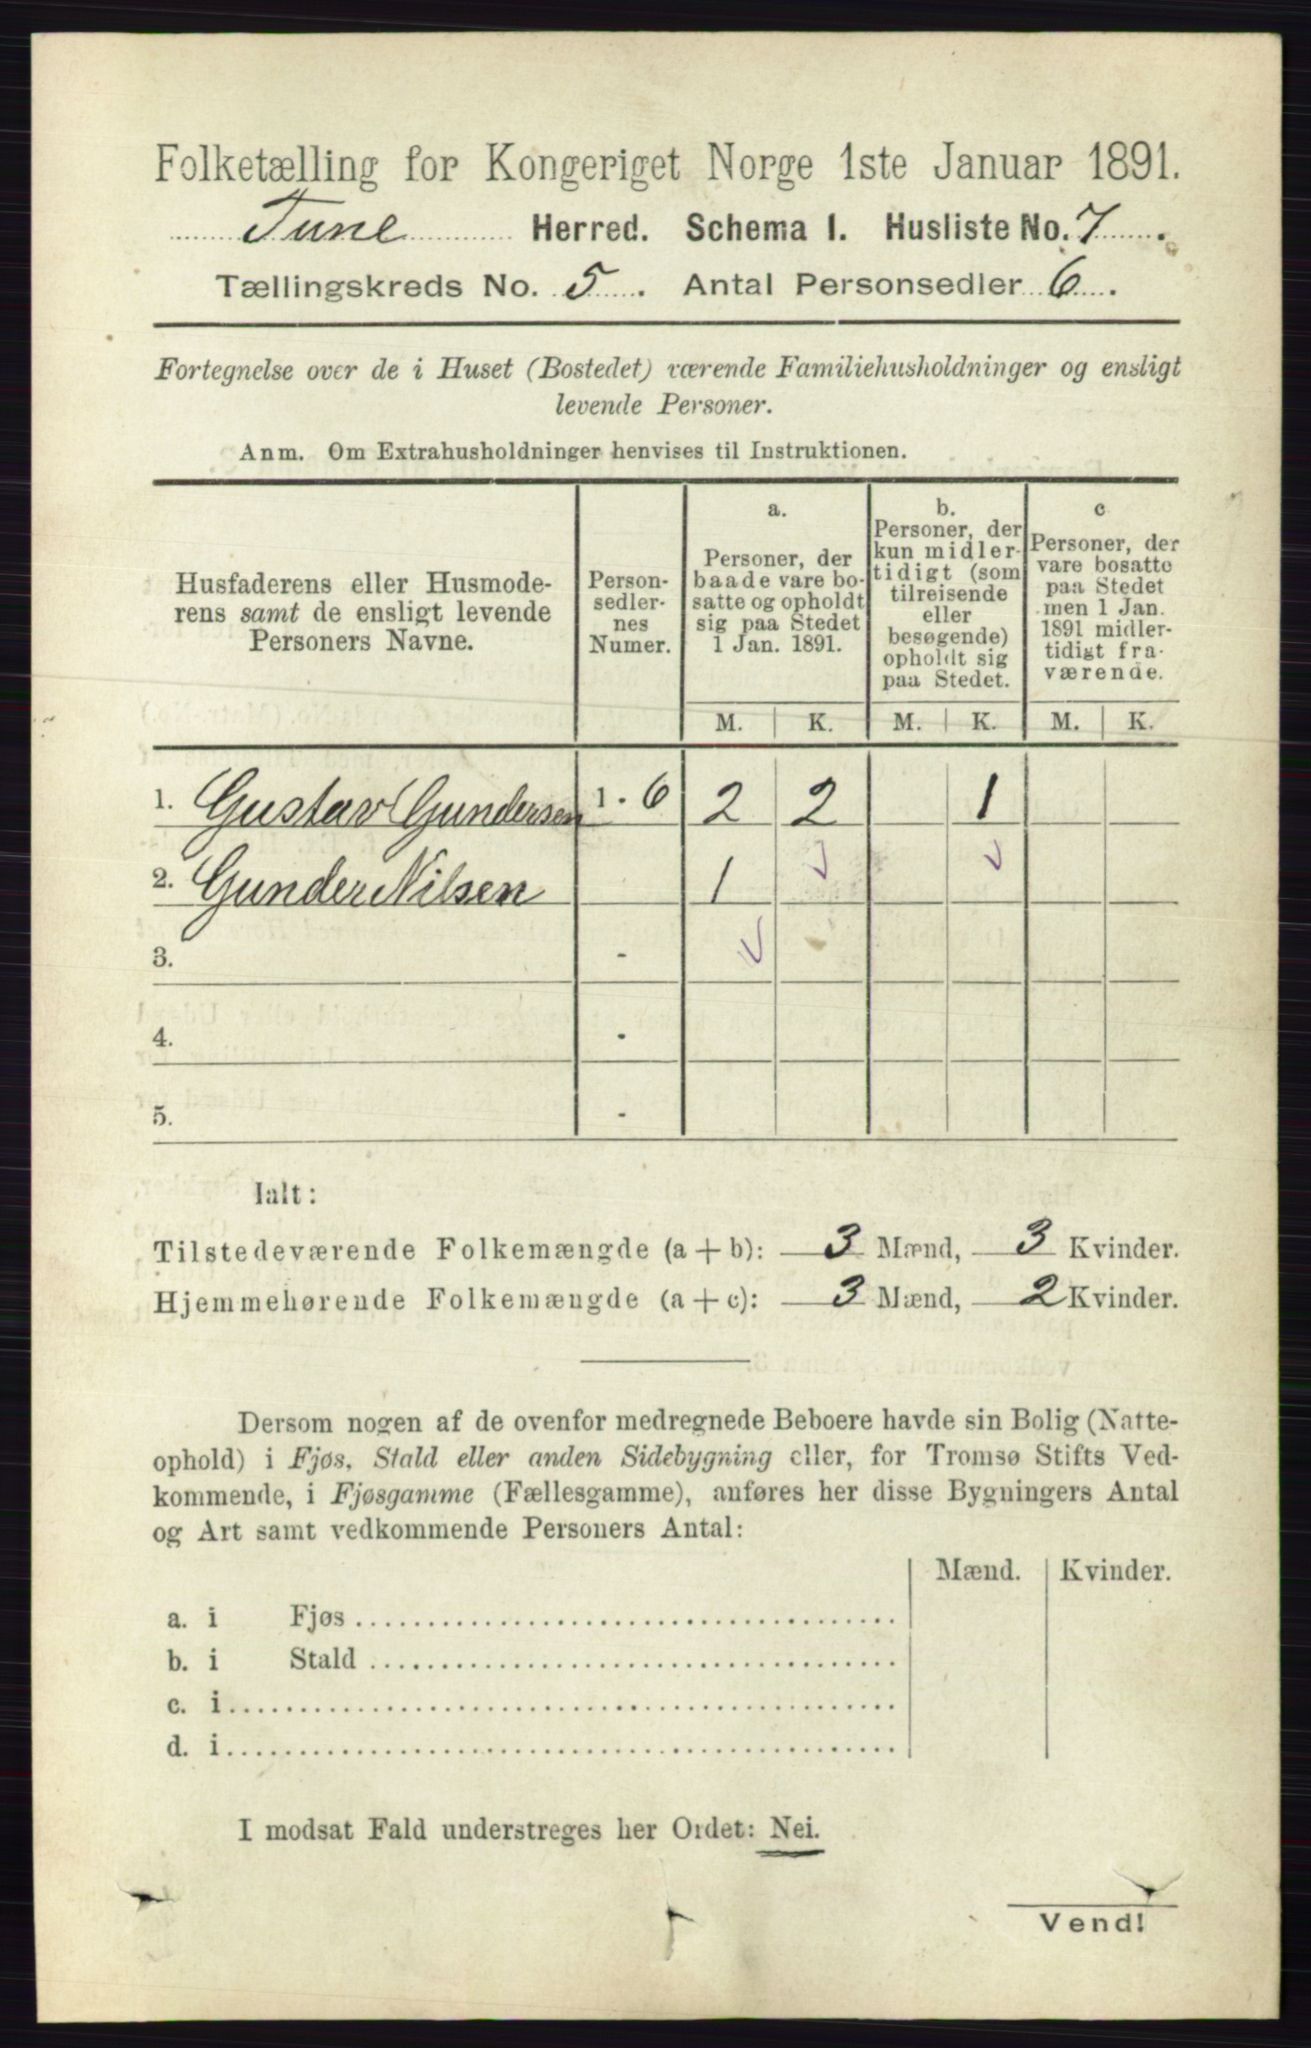 Folketælling for Kongeriget Norge 1ste Januar 1891.
Tune Herred. Schema I. Husliste No. 7.
Tællingskreds No. 5. Antal Personsedler 6.
Fortegnelse over de i Huset (Bostedet) værende Familiehusholdninger og ensligt
levende Personer.
Anm. Om Extrahusholdninger henvises til Instruktionen.
Husfaderens eller Husmode-
rens samt de ensligt levende
Personers Navne.
Person-
sedler-
nes
Numer.
a.
Personer, der
baade vare bo-
satte og opholdt
sig paa Stedet
1 Jan. 1891.
b.
Personer, der
kun midler-
tidigt (som
tilreisende
eller
besøgende)
opholdt sig
paa Stedet.
c
Personer, der
vare bosatte
paa Stedet
men 1 Jan.
1891 midler-
tidigt fra-
værende.
M. K. M. K. M. K.
1. Gustav Gundersen 1 - 6 2 2 1
2. Gunder Nilsen 1
3. -
4. -
5. -
Ialt:
Tilstedeværende Folkemængde (a + b): 3 Mænd, 3 Kvinder.
Hjemmehørende Folkemængde (a + c): 3 Mænd, 2 Kvinder.
Dersom nogen af de ovenfor medregnede Beboere havde sin Bolig (Natte-
ophold) i Fjøs, Stald eller anden Sidebygning eller, for Tromsø Stifts Ved-
kommende, i Fjøsgamme (Fællesgamme), anføres her disse Bygningers Antal
og Art samt vedkommende Personers Antal:
Mænd. Kvinder.
a. i Fjøs
b. i Stald
c. i
d. i
I modsat Fald understreges her Ordet: Nei.
Vend!